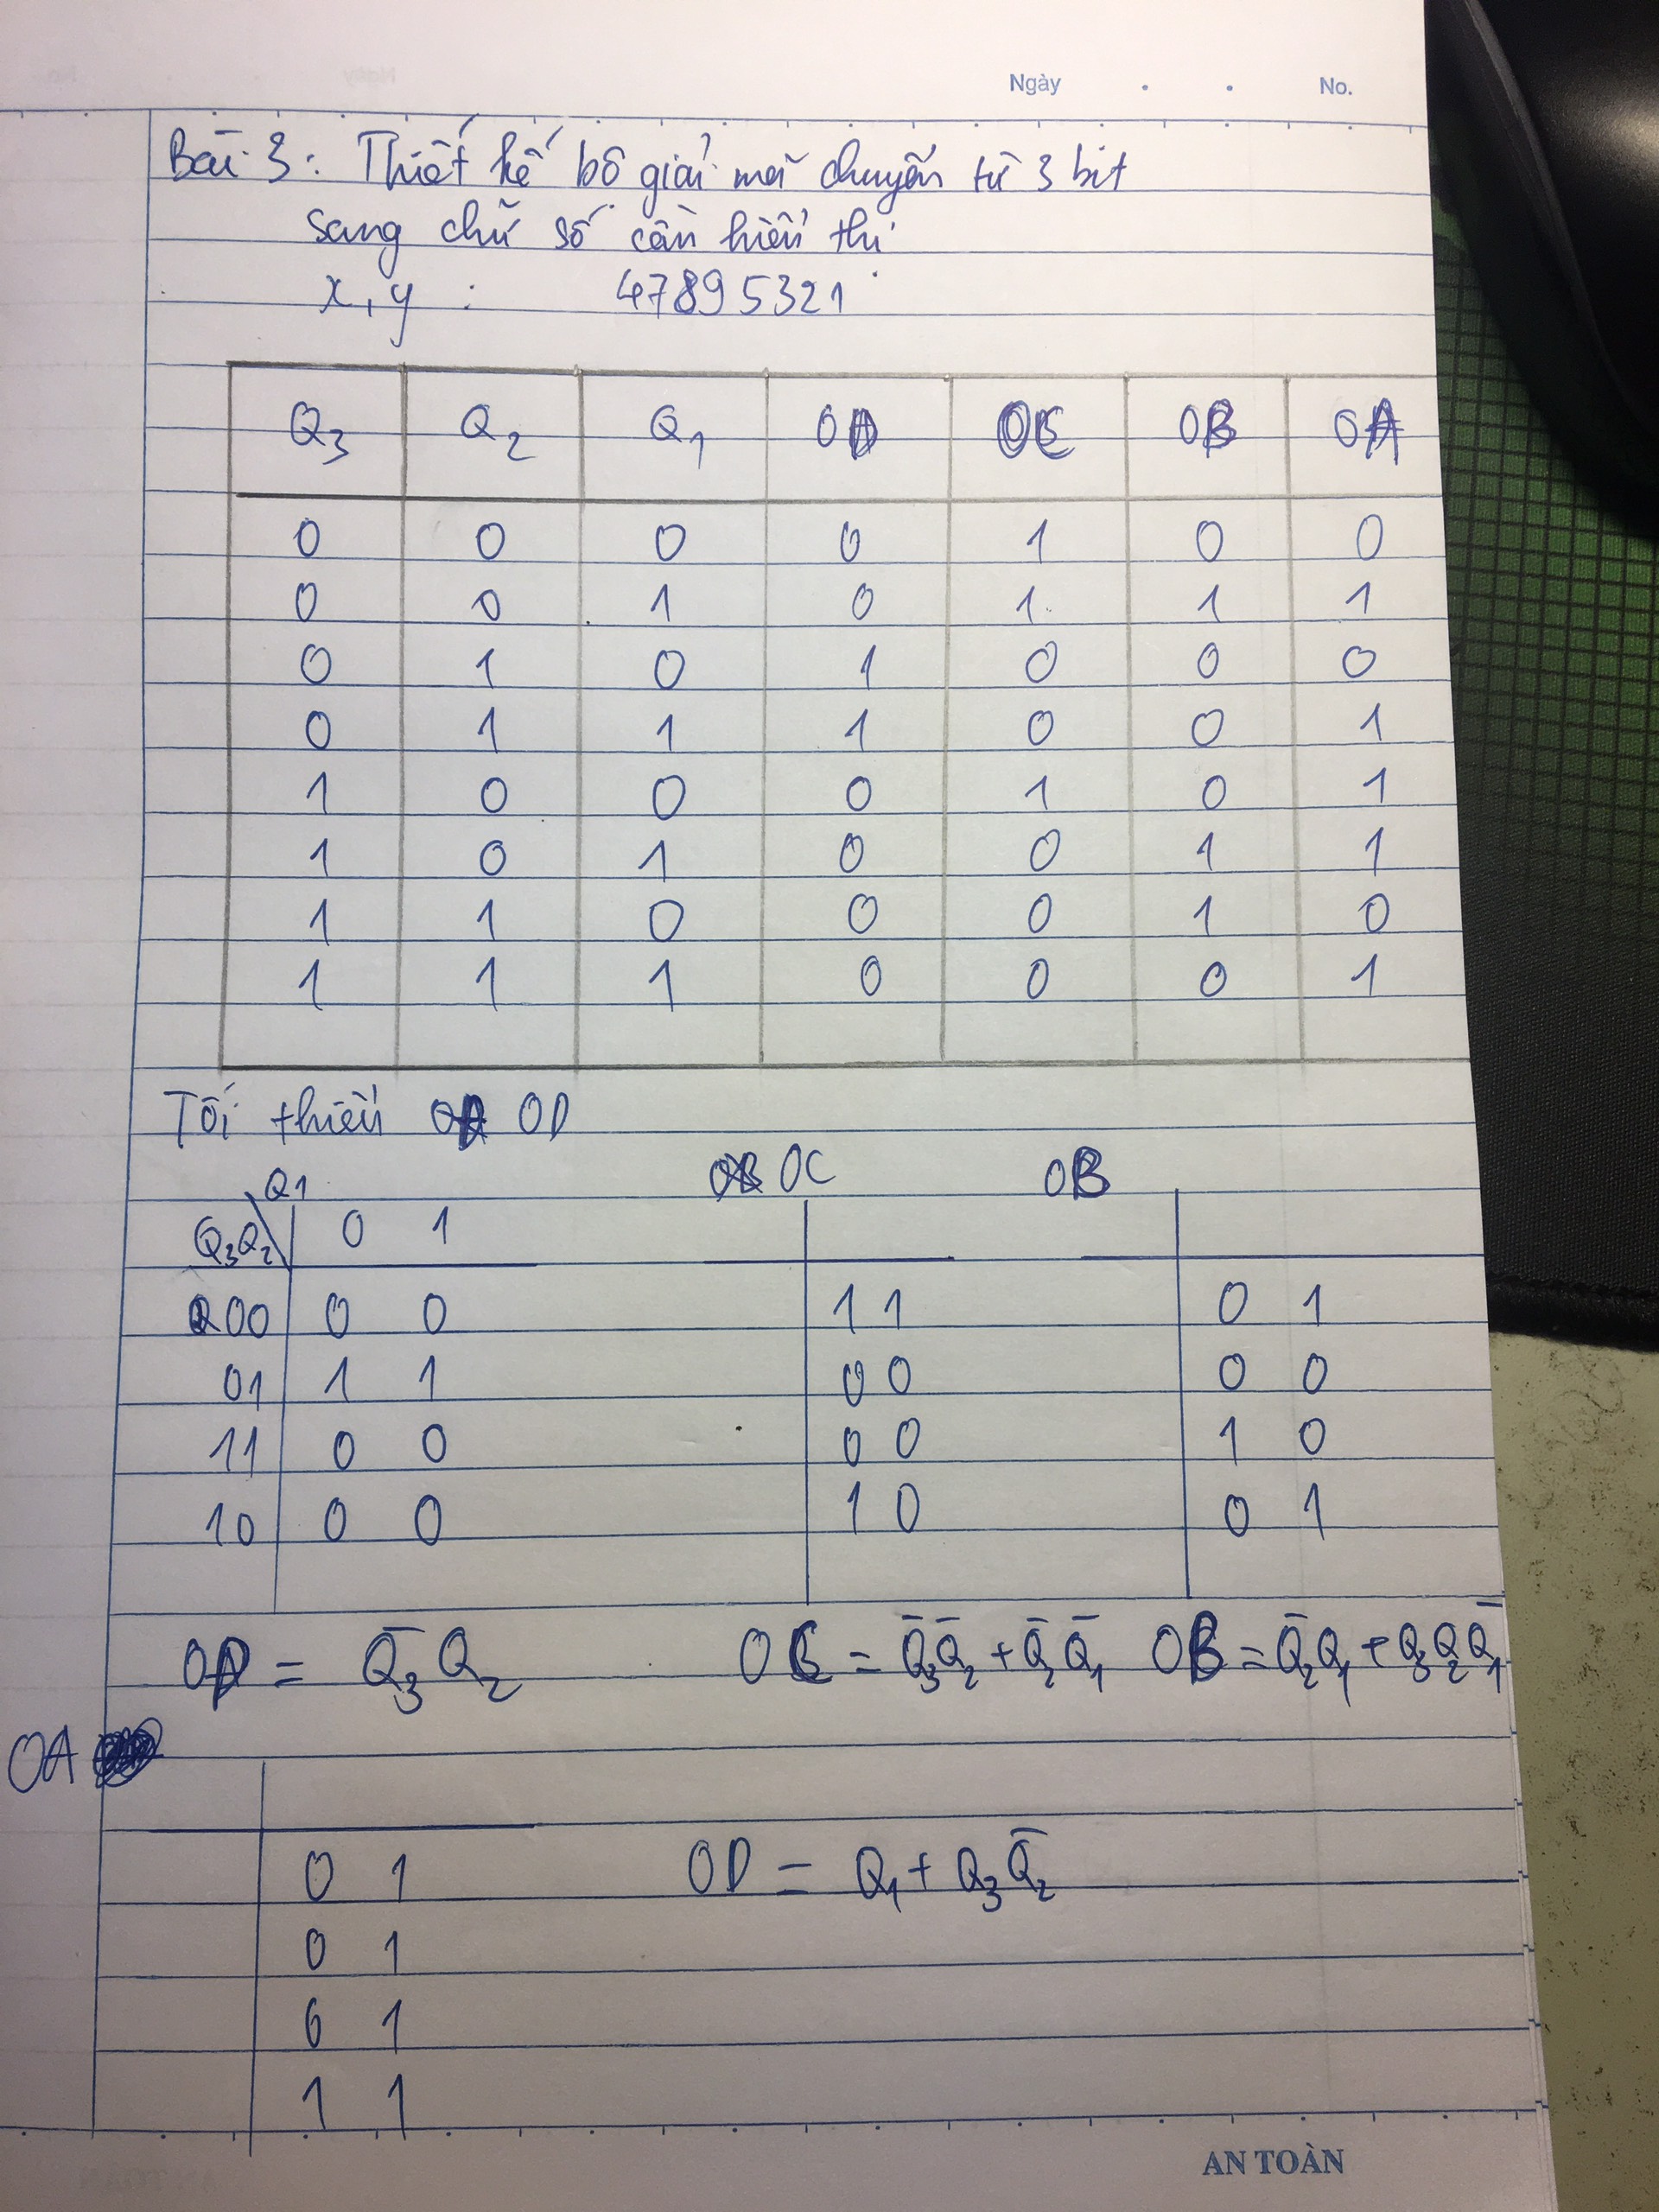 Ngày . . No.
Bài 3: Thiết kế bộ giải mã chuyển từ 3 bit
sang chữ số cần hiển thị
x, y : 47895321
Q3 Q2 Q1 OD OC OB OA
0 0 0 0 1 0 0
0 0 1 0 1 1 1
0 1 0 1 0 0 0
0 1 1 1 0 0 1
1 0 0 0 1 0 1
1 0 1 0 0 1 1
1 1 0 0 0 1 0
1 1 1 0 0 0 1
Tối thiểu OD
OC OB
Q1
Q3Q2 0 1
00 0 0 1 1 0 1
01 1 1 0 0 0 0
11 0 0 0 0 1 0
10 0 0 1 0 0 1
OD = Q̄3 Q2 OC = Q̄3Q̄2 + Q̄2Q̄1 OB = Q̄2Q1 + Q3Q2Q̄1
OA
0 1 OD = Q1 + Q3Q̄2
0 1
0 1
1 1
AN TOÀN